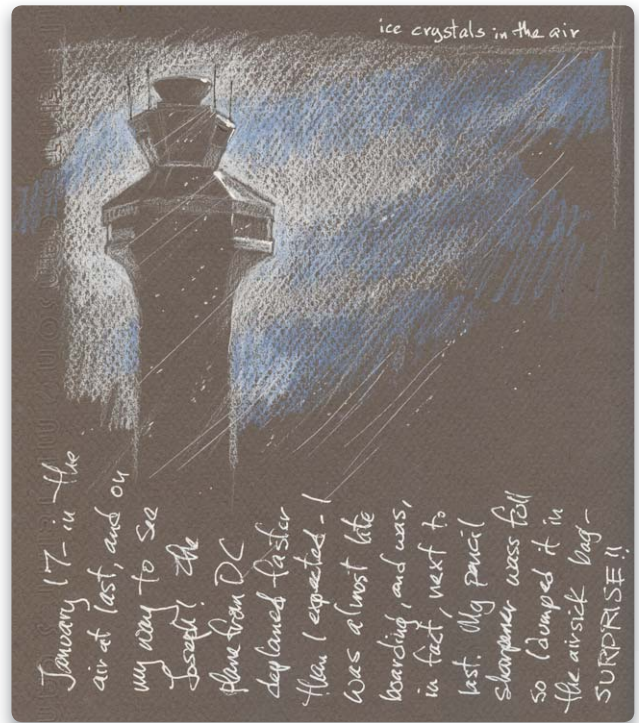 ice crystals in the air
January 17 - in the
air at last, and on
my way to see
Joseph! The
plane from DC
deplaned faster
than I expected - I
was almost late
boarding, and was,
in fact, next to
last. My pencil
sharpener wass full
so I dumped it in
the airsick bag -
SURPRISE!!